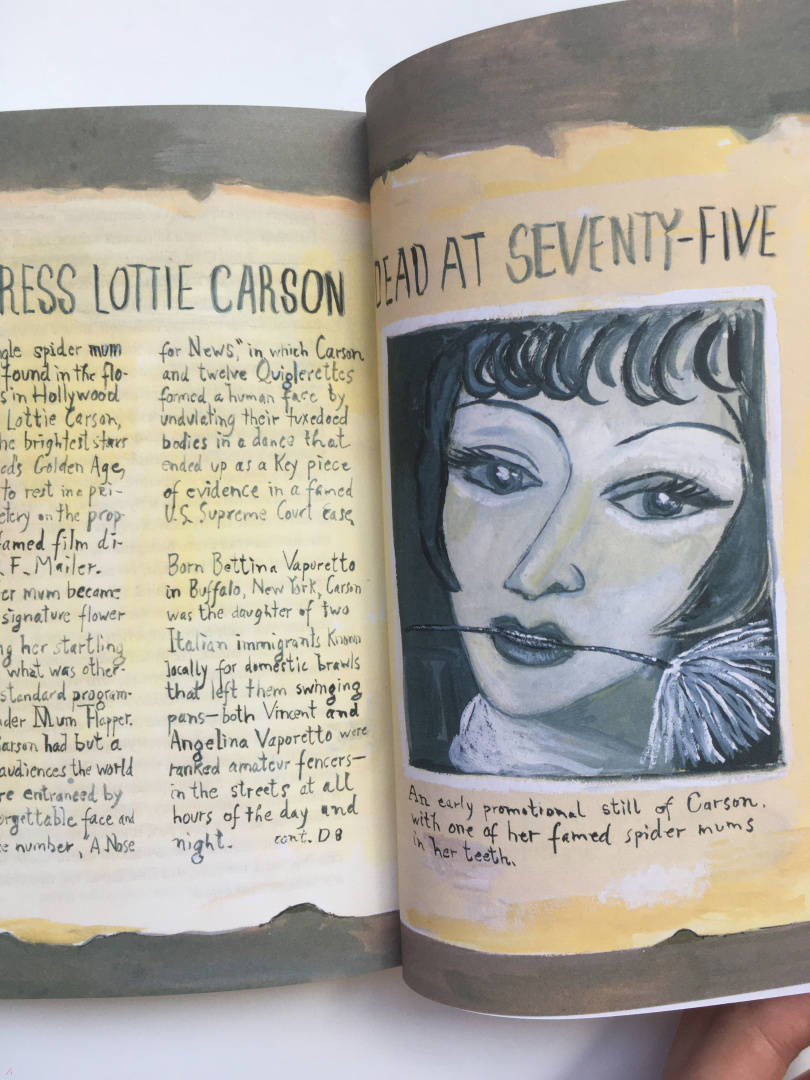 RESS LOTTIE CARSON
gle spider mum
found in the flo-
s in Hollywood
Lottie Carson,
he brightest stars
od's Golden Age,
to rest in a pri-
etery on the prop-
famed film di-
F. Mailer.
er mum became
signature flower
ng her startling
what was other-
standard program-
der Mum Flapper.
Carson had but a
audiences the world
re entranced by
orgettable face and
e number, "A Nose
for News," in which Carson
and twelve Quiglerettes
formed a human face by
undulating their tuxedoed
bodies in a dance that
ended up as a key piece
of evidence in a famed
U.S. Supreme Court case.
Born Bettina Vaporetto
in Buffalo, New York, Carson
was the daughter of two
Italian immigrants known
locally for domestic brawls
that left them swinging
pans—both Vincent and
Angelina Vaporetto were
ranked amateur fencers—
in the streets at all
hours of the day and
night. cont. D8
DEAD AT SEVENTY-FIVE
An early promotional still of Carson,
with one of her famed spider mums
in her teeth.